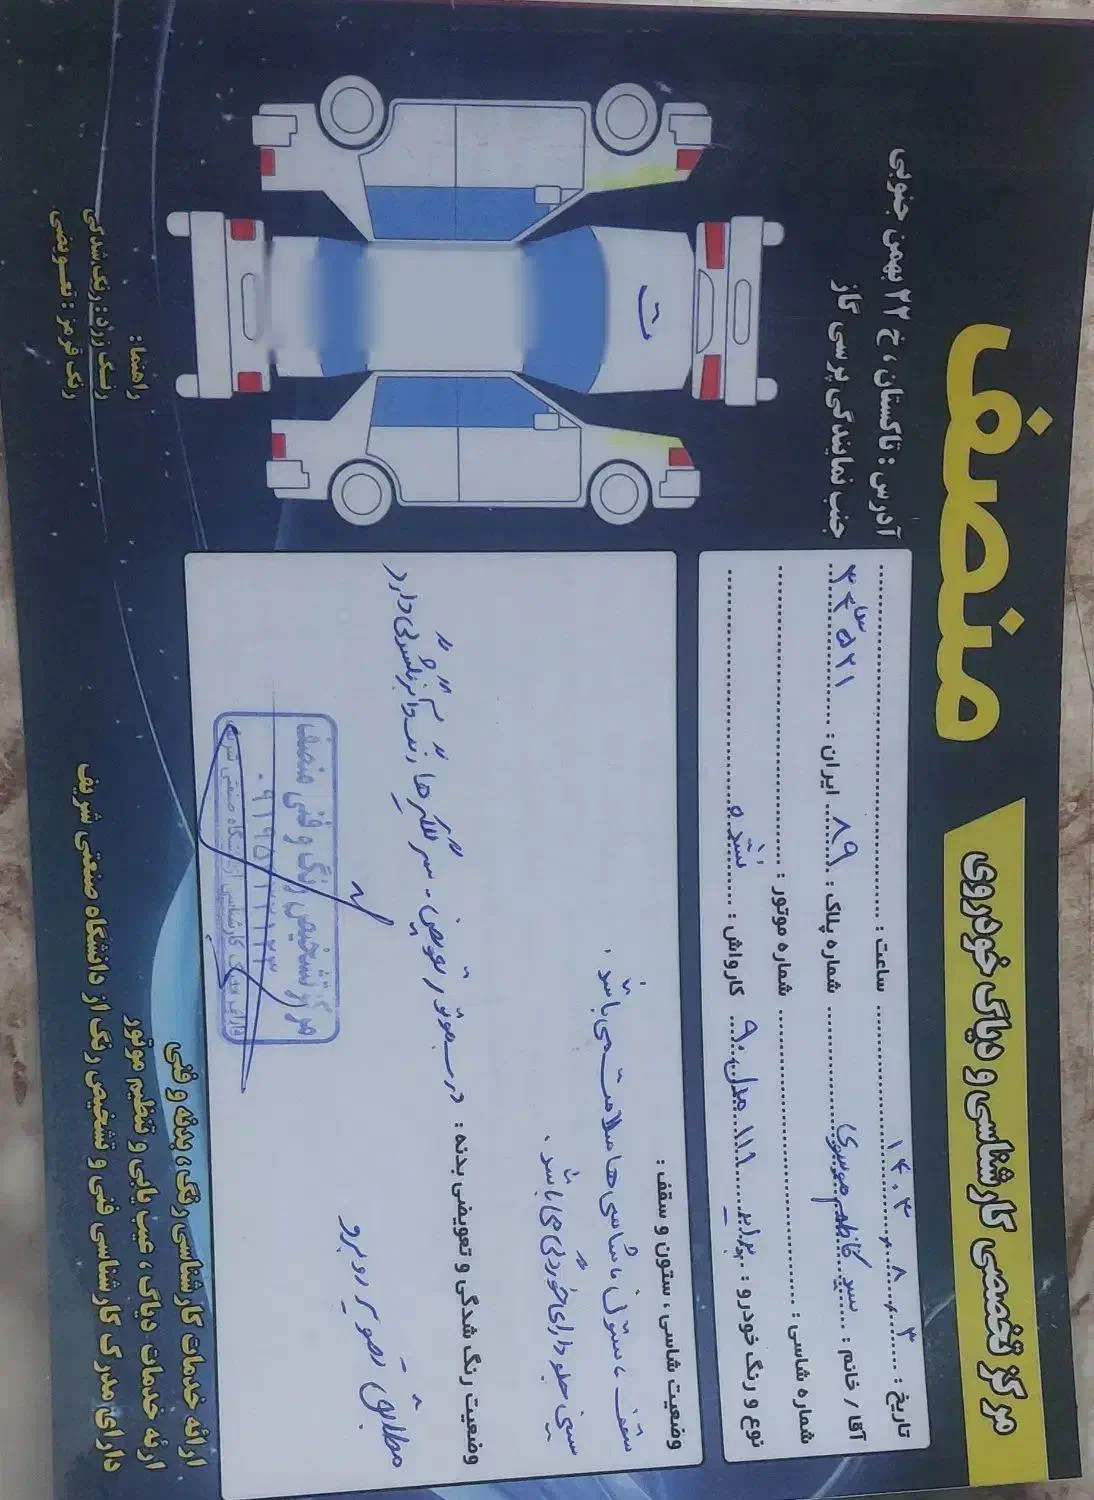 منصف
مرکز تخصصی کارشناسی و دیاگ خودروی
آدرس : تاکستان ، خ ۲۲ بهمن جنوبی
جنب نمایندگی پرسی گاز
تاریخ : ۳ ، ۸ ، ۱۴۰۳ ساعت :
آقا / خانم : سید کاظم موسوی شماره پلاک : ۸۹ ایران :
شماره شاسی : شماره موتور :
نوع و رنگ خودرو : پراید ۱۱۱ مدل ۹۰ کارواش : نشده
وضعیت شاسی ، ستون و سقف :
سقف ، ستون ، شاسی ها سلامت می باشد .
سینی جلو دارای خوردگی می باشد .
وضعیت رنگ شدگی و تعویضی بدنه : درب موتور تعویض - سر گلگیرها رنگ و دارد
مطابق تصویر روبرو
ت
مرکز تشخیص رنگ و فنی منصف
راهنما :
رنگ زرد : رنگ شدگی
رنگ قرمز : تعویضی
ارائه خدمات کارشناسی رنگ ، بدنه و فنی
ارئه خدمات دیاگ ، عیب یابی و تنظیم موتور
دارای مدرک کارشناسی فنی و تشخیص رنگ از دانشگاه صنعتی شریف